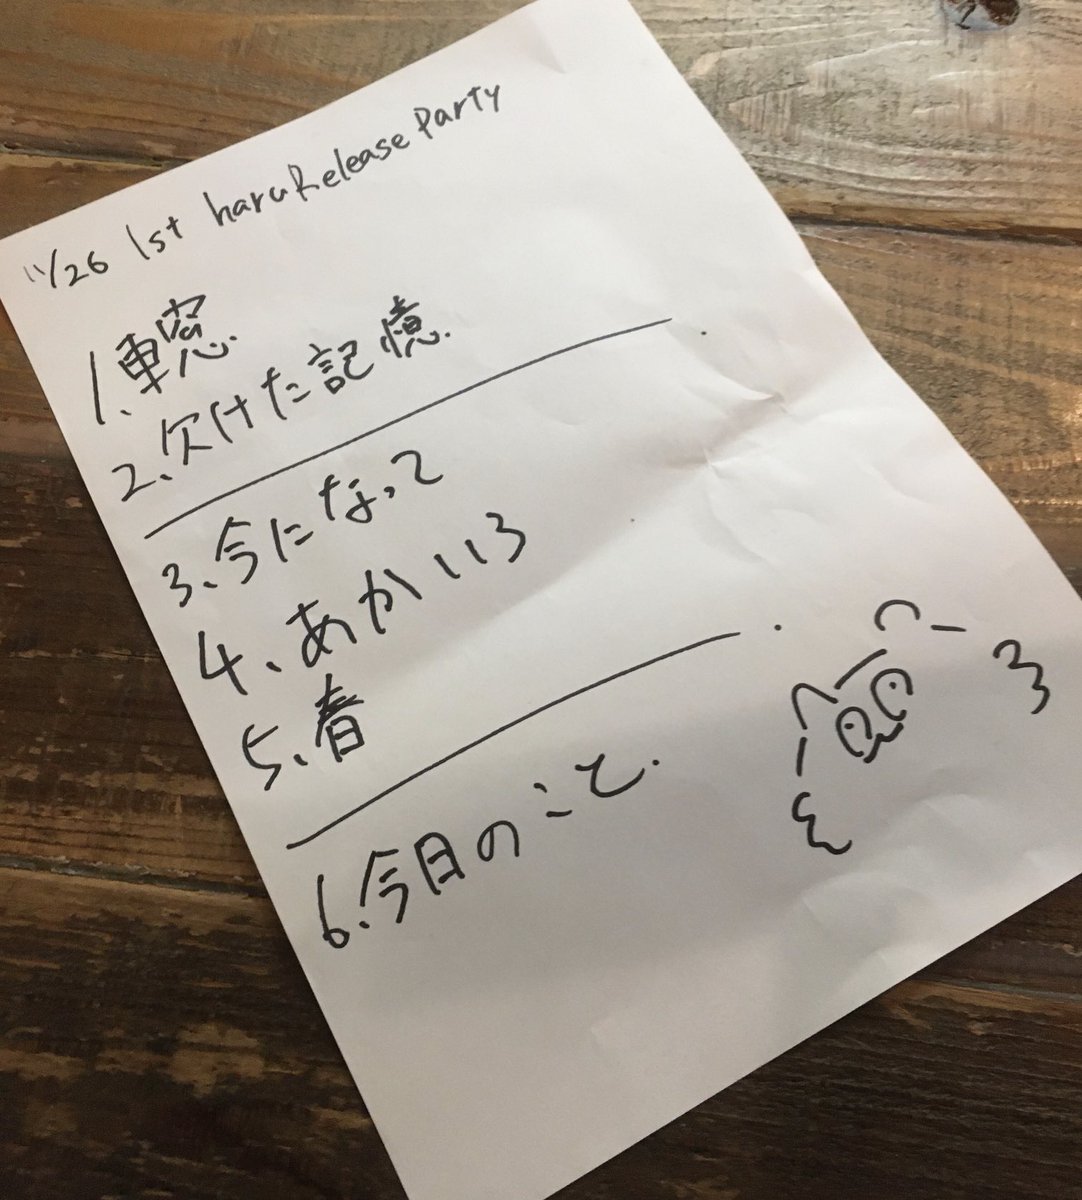 11/26 1st haru Release Party
1、車窓
2、欠けた記憶
3、今になって
4、あかいろ
5、春
6、今日のこと.